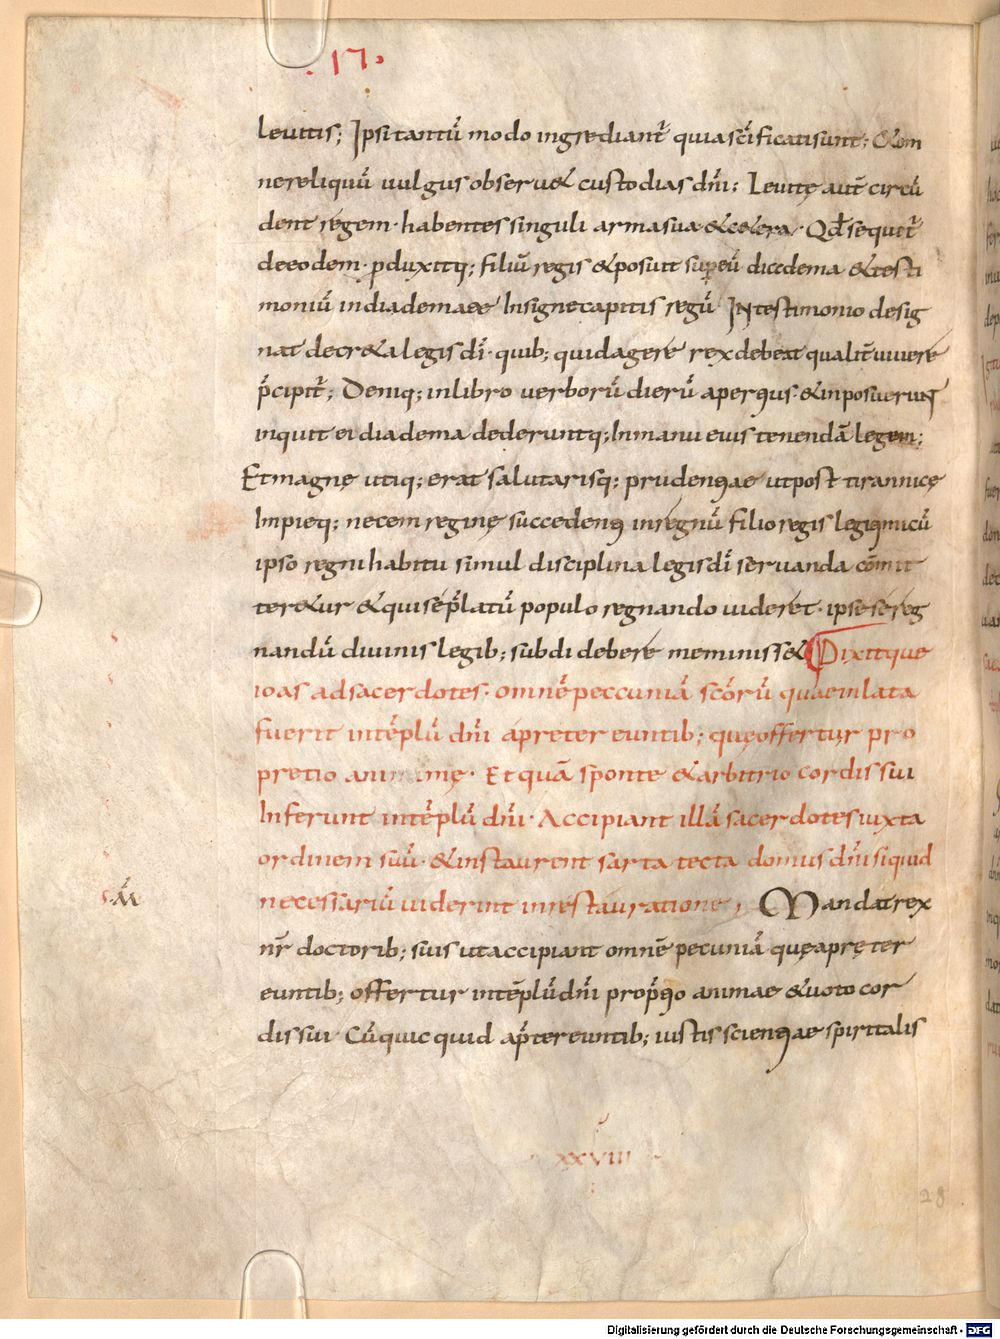 .17.
leuitis; Ipsi tantū modo ingrediant̄ quia sc̄ificati sunt; & om
ne reliquū uulgus obseru& custodias dn̄i; Leuitę aut̄ circū
dent regem · habentes singuli arma sua & c&era · Qd̄ sequit̄
de eodem · pduxitq; filiū regis & posuit sup eū diadema & testi
moniū in diademate Insigne capitis regū IN testimonio desig
nat decr&a legis dī · quib; quid agere rex debeat qualit̄ uiuere
p̄cipit̄; Deniq; in libro uerborū dierū apertius · & inposuerunt
inquit ei diadema dederuntq; In manu eius tenendā legem;
Et magnę utiq; erat salutarisq; prudentiae ut post tirannicę
Impieq; necem reginę succedenti in regnū filio regis legitimi cū
ipso regni habitu simul disciplina legis dī seruanda cōmit
ter&ur & qui se p̄latū populo regnando uideret · ipse se reg
nandū diuinis legib; subdi debere meminiss& Dixitque
ioas ad sacerdotes · omnē peccuniā scōrū quae inlata
fuerit in tēplū dn̄i a preter euntib; quę offertur pro
pretio animę · Et quā sponte & arbitrio cordis sui
Inferunt in tēplū dn̄i · Accipiant illā sacerdotes iuxta
ordinem suū · & instaurent sarta tecta domus dn̄i siquid
necessariū uiderint in restauratione; Mandat rex
nr̄ doctorib; suis ut accipiant omnē pecuniā quę a pręter
euntib; offertur in tēplū dn̄i prop̄tio animae & uoto cor
dis sui Cū quicquid a p̄tereuntib; iustis scientiae spiritalis
XXVIII
28
Digitalisierung gefördert durch die Deutsche Forschungsgemeinschaft - DFG